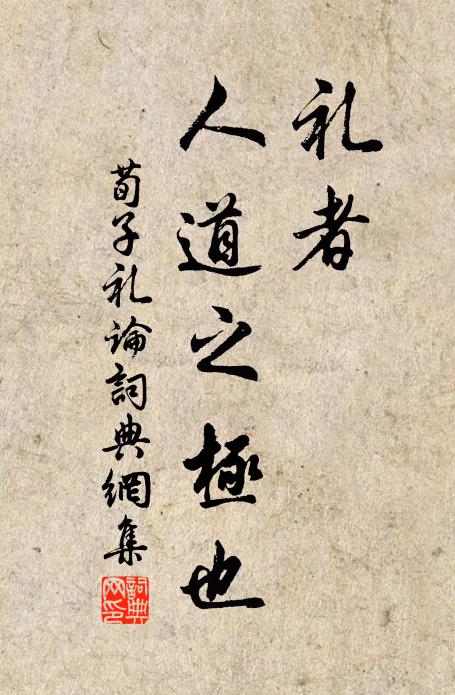 礼者
人道之極也
荀子礼論詞典網集
詞典
網印